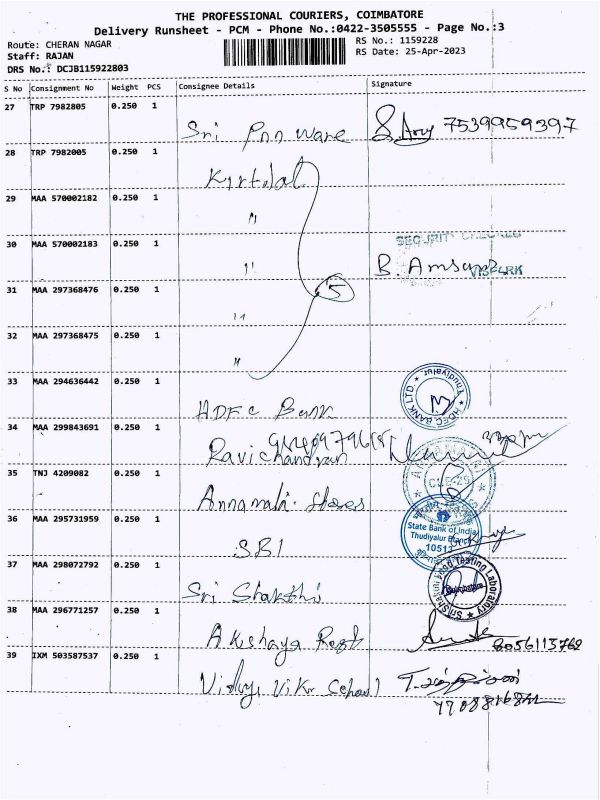 THE PROFESSIONAL COURIERS, COIMBATORE
Delivery Runsheet - PCM - Phone No.:0422-3505555 - Page No.:3
Route: CHERAN NAGAR
RS No.: 1159228
Staff: RAJAN
RS Date: 25-Apr-2023
DRS No.: DCJB115922803
S No Consignment No Weight PCS Consignee Details Signature
27 TRP 7982805 0.250 1
Sri Pnn ware 7539959397
28 TRP 7982005 0.250 1
Kyrtilal
29 MAA 570002182 0.250 1
"
30 MAA 570002183 0.250 1
" B. Amsa
31 MAA 297368476 0.250 1
" 5
32 MAA 297368475 0.250 1
"
33 MAA 294636442 0.250 1
HDFC Bank
HDFC BANK LTD Thudiyalur
34 MAA 299843691 0.250 1
Ravichandran
35 TNJ 4209082 0.250 1
Annamalai Stores
36 MAA 295731959 0.250 1
SBI
State Bank of India
Thudiyalur Branch
10513
37 MAA 298072792 0.250 1
Sri Shakthi
Sri Shakthi Food Testing Laboratory
38 MAA 296771257 0.250 1
Akshaya 8056113762
39 IXM 503587537 0.250 1
Vidhya Vikas School